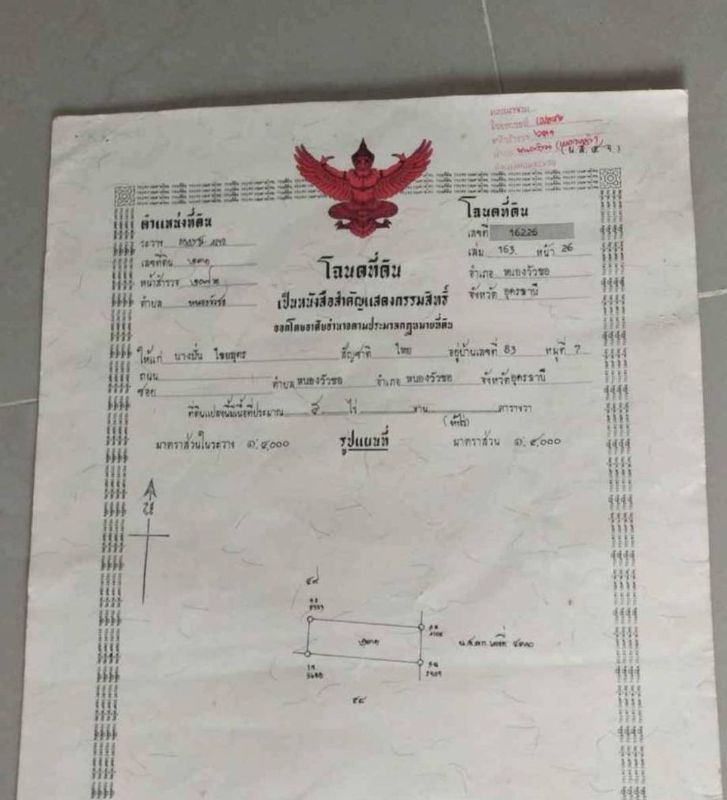 (น.ส.๔ จ.)
ตำแหน่งที่ดิน
ระวาง
เลขที่ดิน ๒๓๑
หน้าสำรวจ
ตำบล หนองวัวซอ
โฉนดที่ดิน
เลขที่ 16226
เล่ม 163. หน้า 26
อำเภอ หนองวัวซอ
จังหวัด อุดรธานี
โฉนดที่ดิน
เป็นหนังสือสำคัญแสดงกรรมสิทธิ์
ออกโดยอาศัยอำนาจตามประมวลกฎหมายที่ดิน
ให้แก่ นางปั่น ไชยสุตร สัญชาติ ไทย อยู่บ้านเลขที่ 83 หมู่ที่ 7
ถนน
ซอย ตำบล หนองวัวซอ อำเภอ หนองวัวซอ จังหวัด อุดรธานี
ที่ดินแปลงนี้มีเนื้อที่ประมาณ ๕ ไร่ งาน ตารางวา
(ห้าไร่)
มาตราส่วนในระวาง ๑:๔๐๐๐ รูปแผนที่ มาตราส่วน ๑:๔๐๐๐
๒๓๑